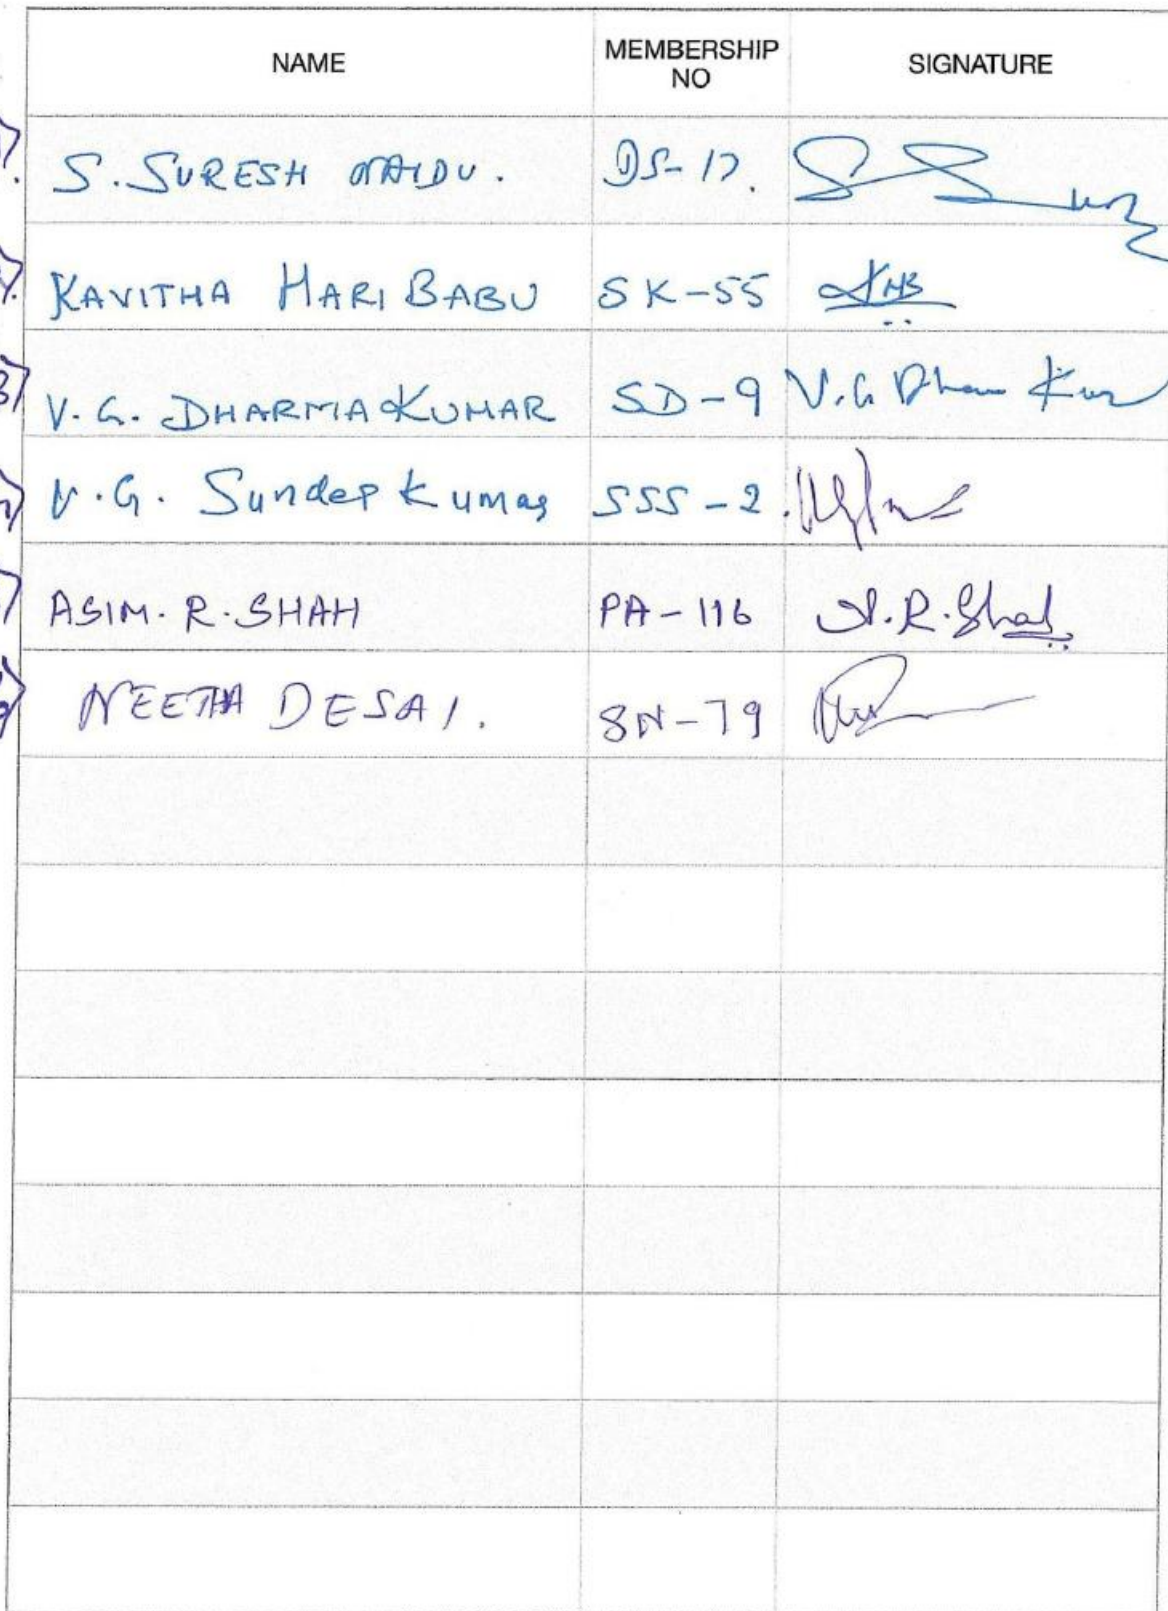 NAME MEMBERSHIP NO SIGNATURE
S. SURESH NAIDU. DS-17.
KAVITHA HARI BABU SK-55 KHB
V.G. DHARMA KUMAR SD-9 V.G Dham Kur
V.G. Sundep Kumar SSS-2
ASIM. R. SHAH PA-116 A.R.Shah
NEETHA DESAI. SN-79